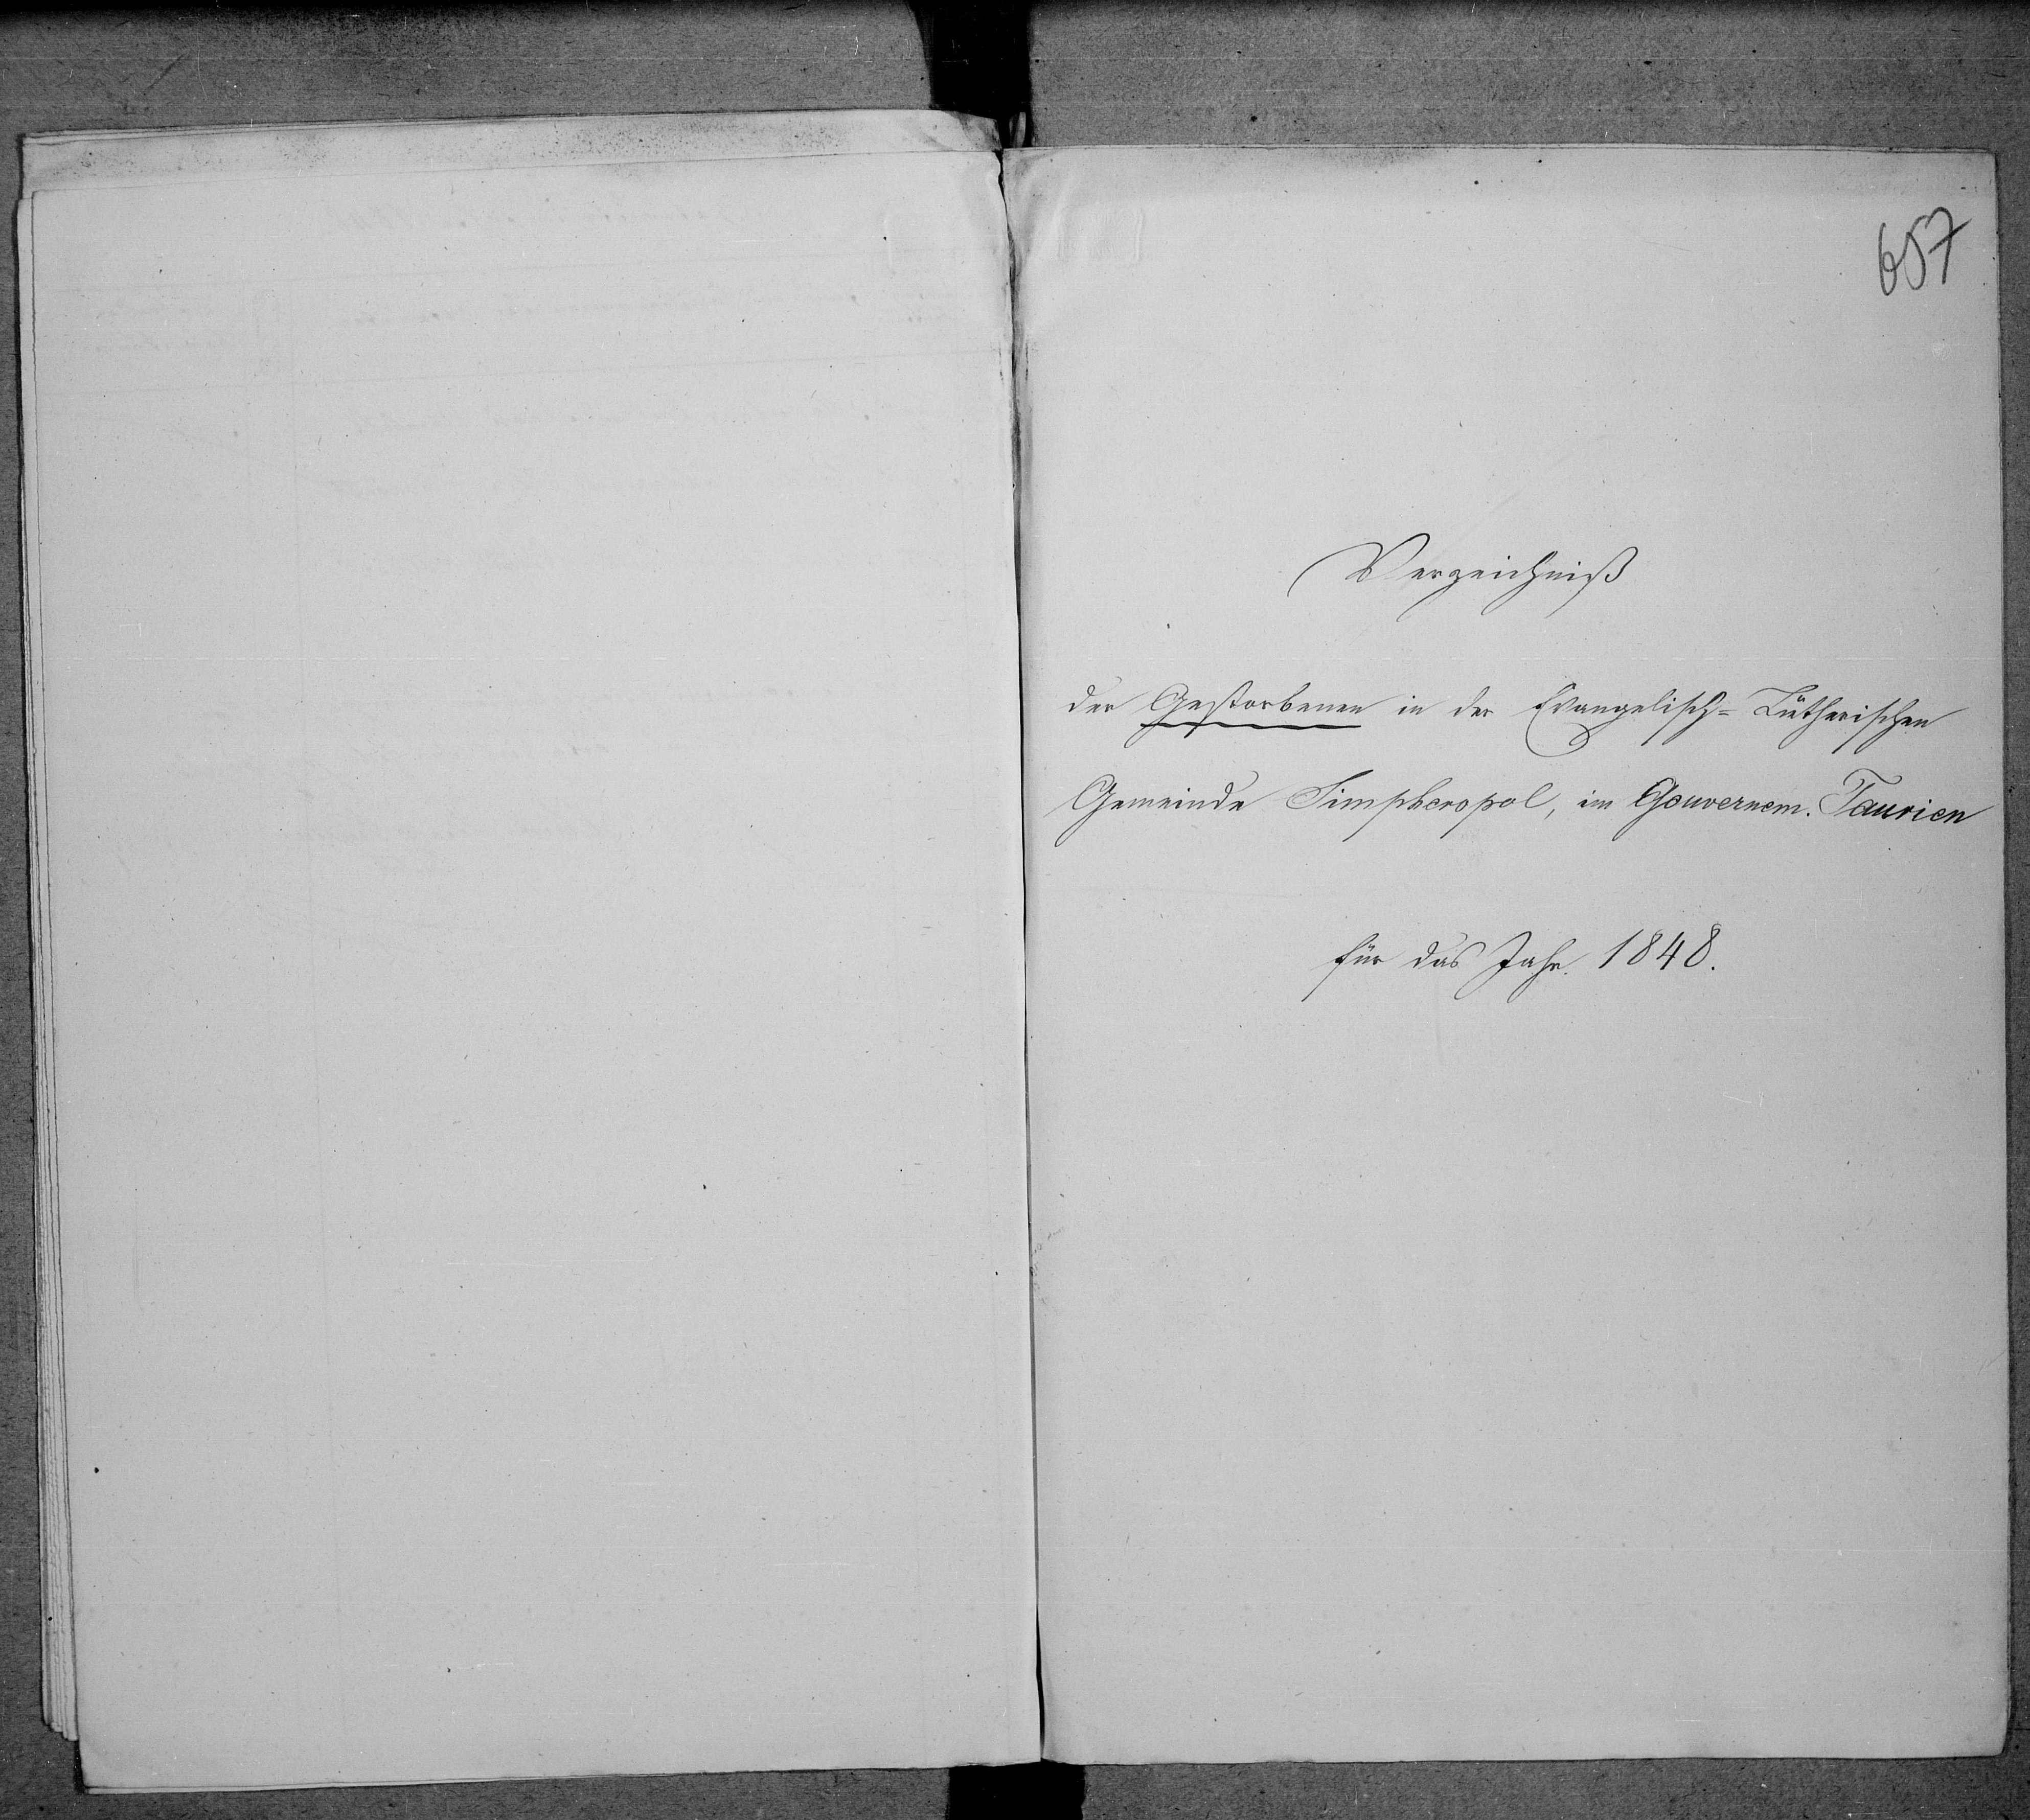 657
Verzeichniß
der Gestorbenen in der Evangelisch= Lutherischen
Gemeinde Simpheropol, im Gouvernem. Taurien
für das Jahr 1848.